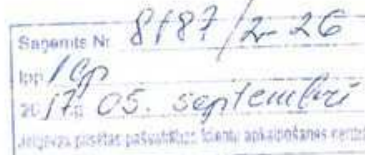 Saņemts Nr. 8187/2-26
lpp 1 lp
2017. 05. septembrī
Jelgavas pilsētas pašvaldības klientu apkalpošanas centrs